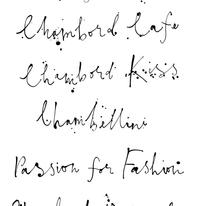 Chambord Cafe
Chambord Kiss
Chambellini
Passion for Fashion